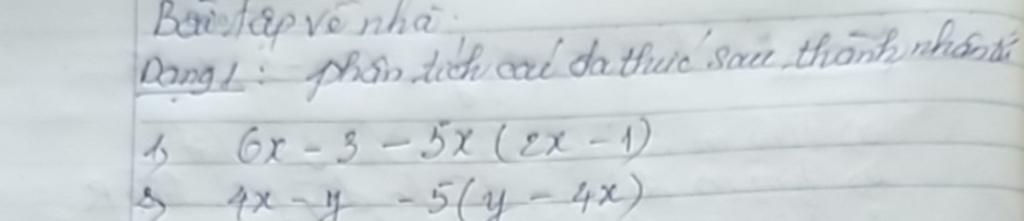 Bài tập về nhà.
Dạng 1: phân tích các đa thức sau thành nhân tử
1, 6x - 3 - 5x (2x - 1)
4x - y - 5(y - 4x)